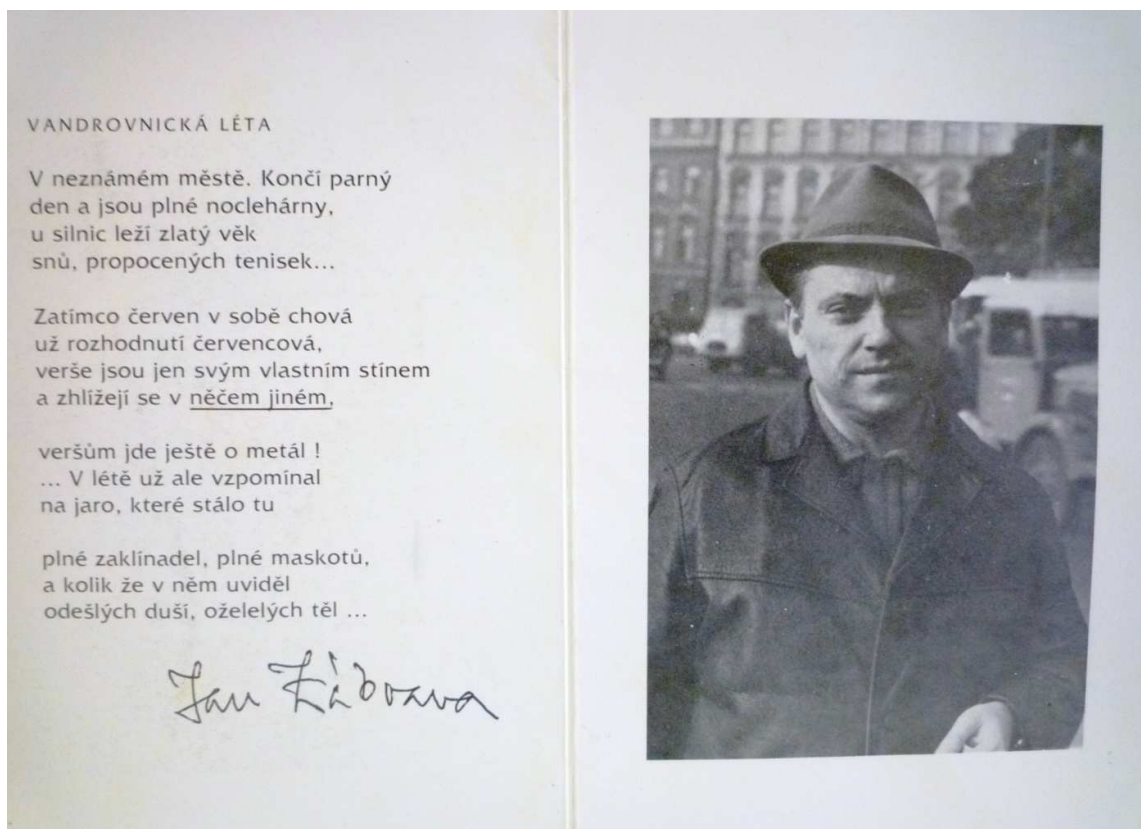 VANDROVNICKÁ LÉTA
V neznámém městě. Končí parný
den a jsou plné noclehárny,
u silnic leží zlatý věk
snů, propocených tenisek...
Zatímco červen v sobě chová
už rozhodnutí červencová,
verše jsou jen svým vlastním stínem
a zhlížejí se v něčem jiném,
veršům jde ještě o metál !
... V létě už ale vzpomínal
na jaro, které stálo tu
plné zaklínadel, plné maskotů,
a kolik že v něm uviděl
odešlých duší, oželelých těl ...
Jan Zábrana